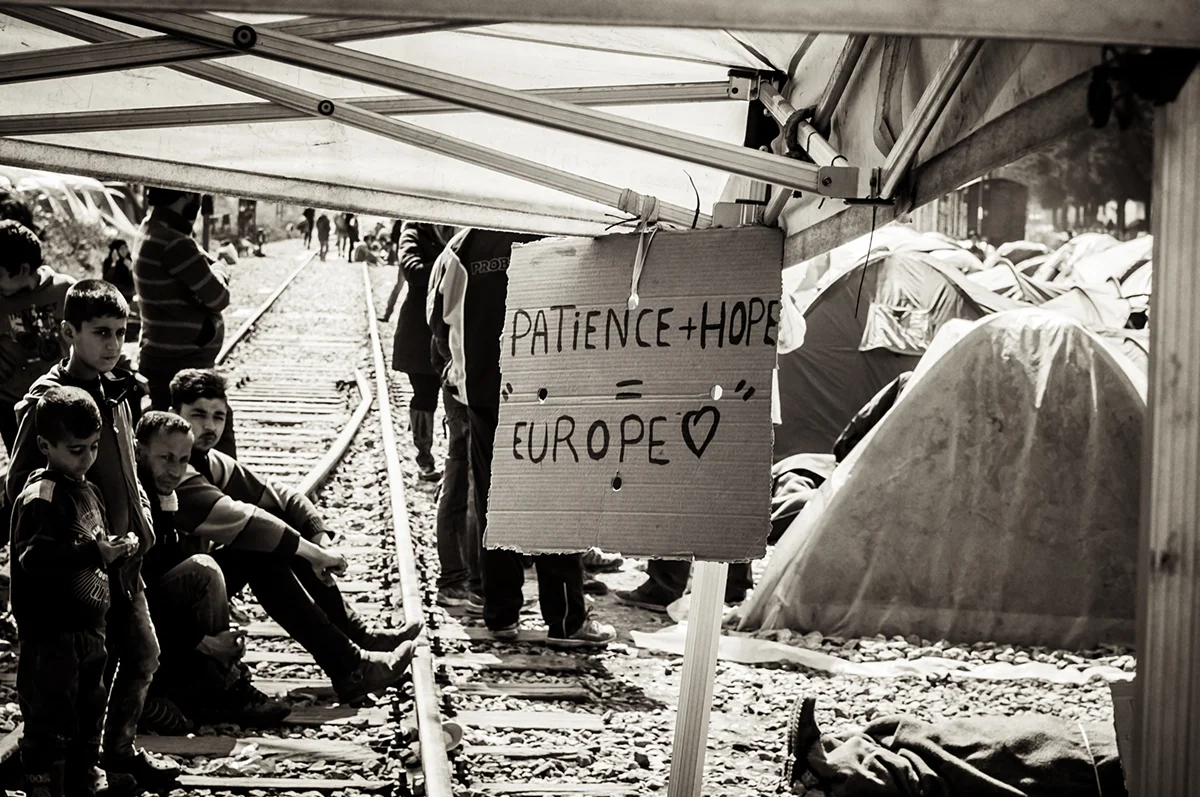 PATiENCE + HOPE
" = "
EUROPE ♡